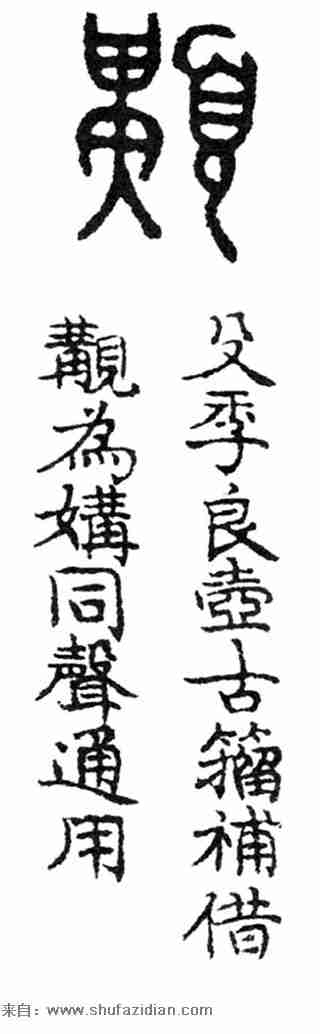 殳季良壺古籀補借
覯為媾同聲通用
来自：www.shufazidian.com